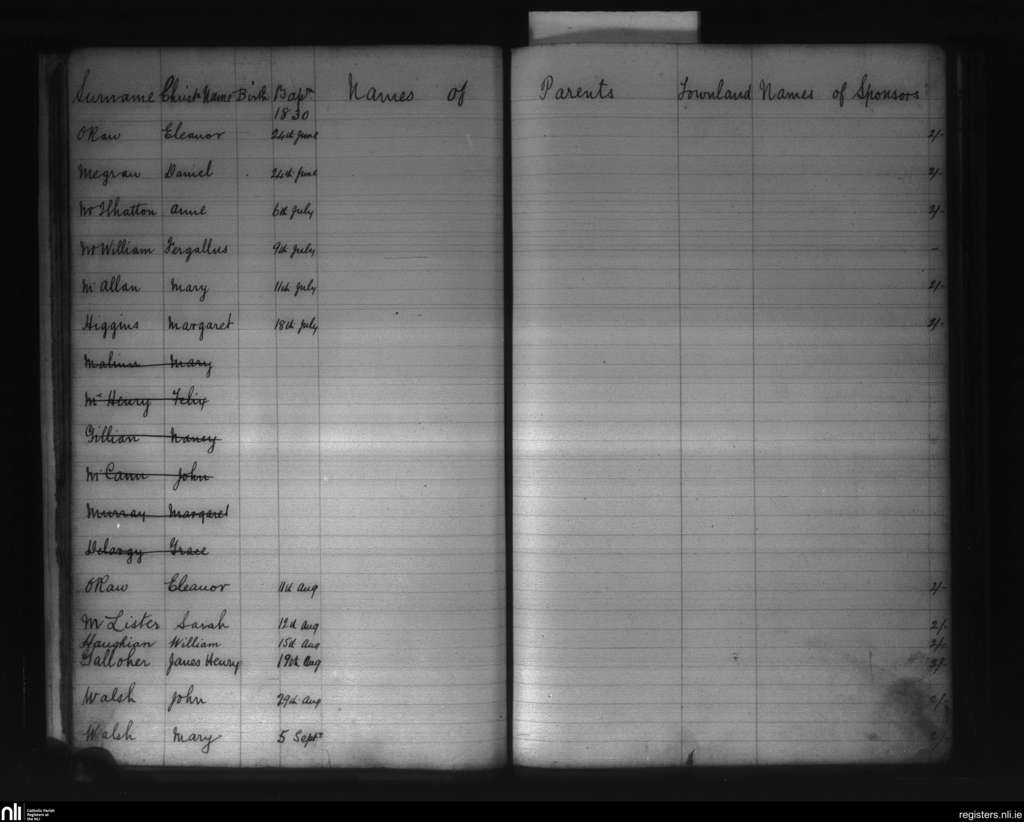 Surname Christ. Name Birth Bapt. Names of Parents Townland Names of Sponsors
1830
O'Raw Eleanor 24th June 2/-
Megraw Daniel 24th June 2/-
Anne 6th July 2/-
McWilliam Fergallus 9th July -
McAllan Mary 11th July 2/-
Higgins Margaret 18th July 2/-
Mary
McHenry Felix
Gillian Nancy
McCann John
Murray Margaret
Delargy Grace
O'Raw Eleanor 11th Aug 2/-
McLister Sarah 12th Aug 2/-
Haughian William 15th Aug 2/-
Galloher James Henry 19th Aug 2/-
Walsh John 29th Aug 2/-
Walsh Mary 5 Septr 2/-
nli Catholic Parish
Registers at
the NLI
registers.nli.ie